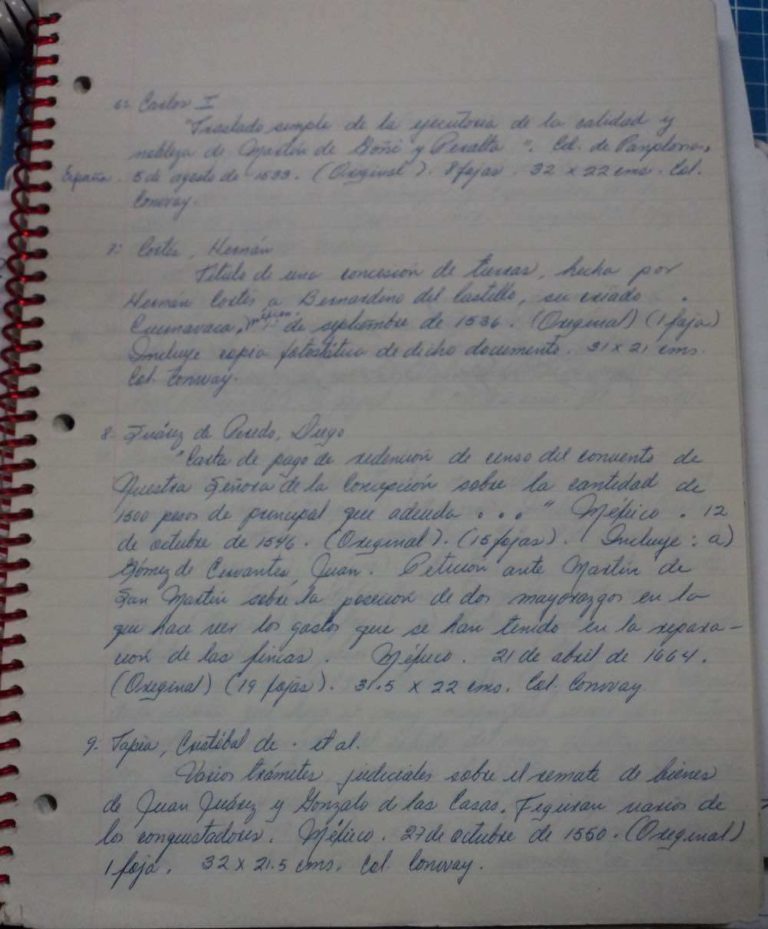 6- Carlos I
"Traslado simple de la ejecutoria de la calidad y
nobleza de Martín de Goñi y Peralta". Cd. de Pamplona,
España. 5 de agosto de 1533. (Original). 8 fojas. 32 x 22 cms. Col.
Conway.
7- Cortés, Hernán
Título de una concesión de tierras, hecha por
Hernán Cortés a Bernardino del Castillo, su criado.
Cuernavaca, México. de septiembre de 1536. (Original) (1 foja)
Incluye copia fotostática de dicho documento. 31 x 21 cms.
Col. Conway.
8- Juárez de Peredo, Diego
"Carta de pago de redención de censo del convento de
Nuestra Señora de la Concepción sobre la cantidad de
1500 pesos de principal que adeuda ..." México. 12
de octubre de 1546. (Original). (15 fojas). Incluye: a)
Gómez de Cervantes, Juan. Petición ante Martín de
San Martín sobre la posesión de dos mayorazgos en la
que hace ver los gastos que se han tenido en la repara-
ción de las fincas. México. 21 de abril de 1664.
(Original) (19 fojas). 31.5 x 22 cms. Col. Conway
9- Tapia, Cristóbal de. et al.
Varios trámites judiciales sobre el remate de bienes
de Juan Juárez y Gonzalo de las Casas. Figuran varios de
los conquistadores. México. 27 de octubre de 1550. (Original)
1 foja. 32 x 21.5 cms. Col. Conway.